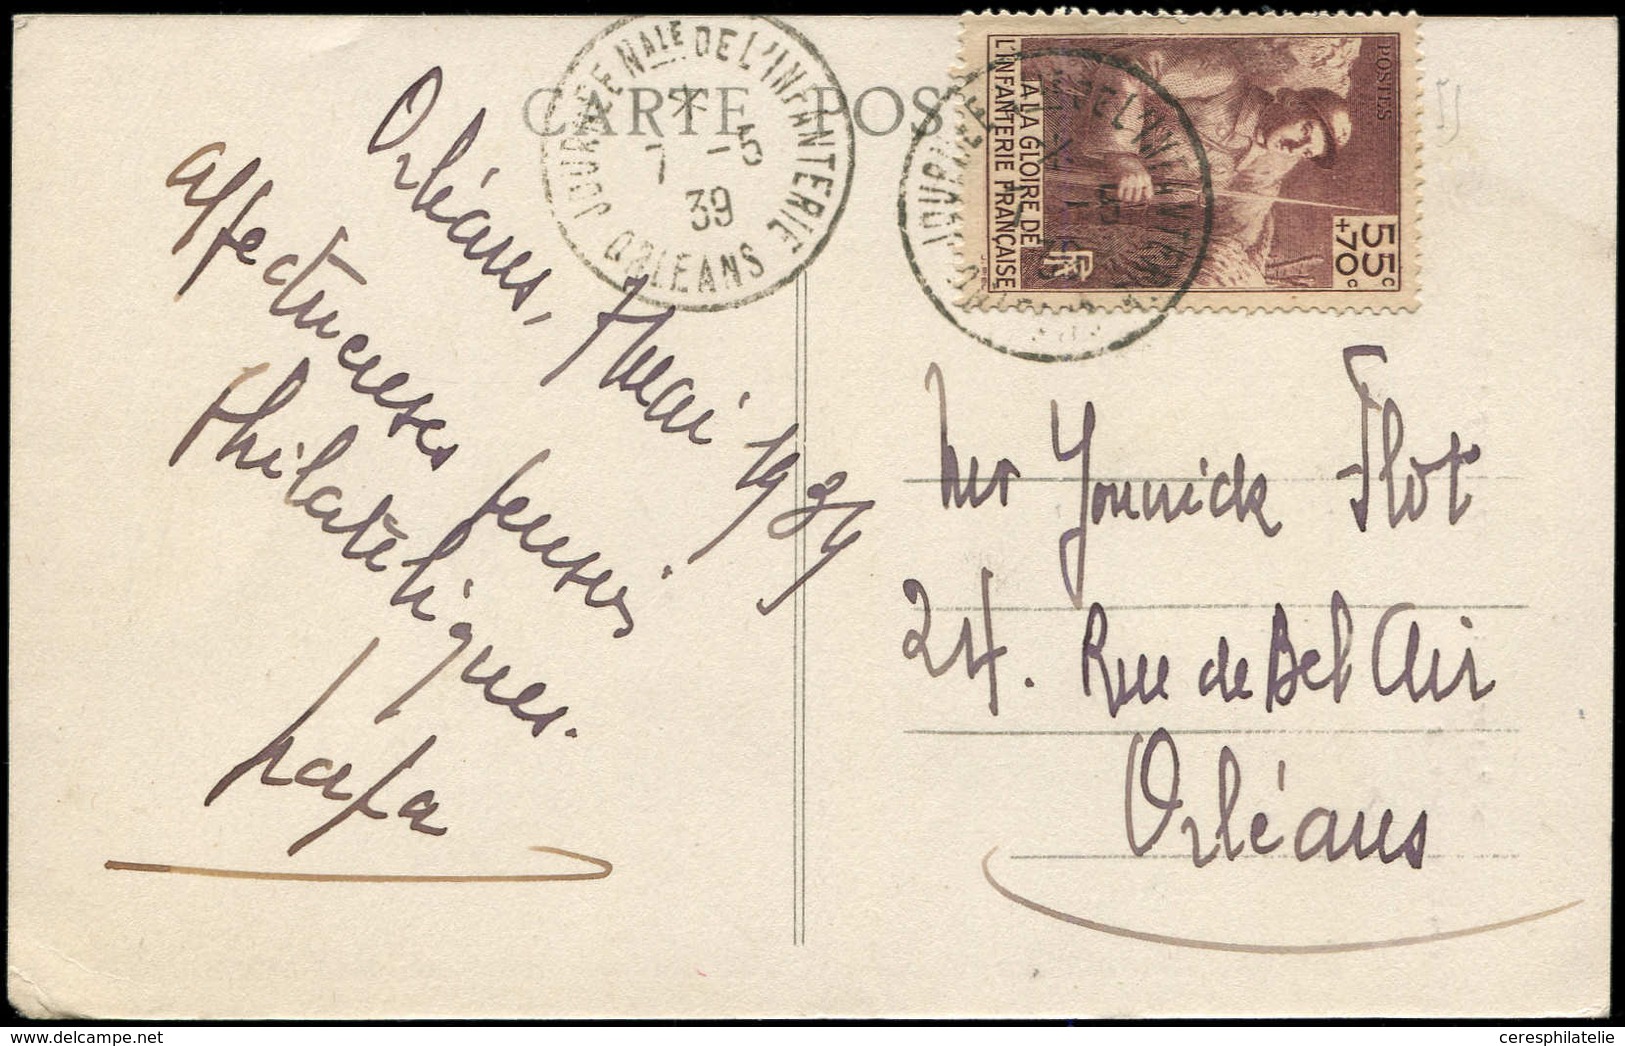 CARTE POS
JOURNÉE Nale DE L'INFANTERIE
*
7-5
39
ORLEANS
POSTES
A LA GLOIRE DE
L'INFANTERIE FRANÇAISE
55c
+70c
RF
Orléans, 7 mai 1939
affectueuses pensées
philatéliques.
papa
Mr Yannick Flot
24. Rue de Bel Air
Orléans
ceresphilatelie